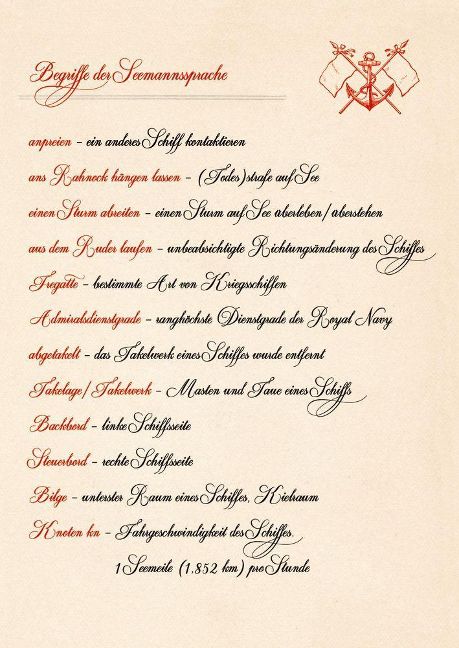 Begriffe der Seemannssprache
anpreien - ein anderes Schiff kontaktieren
ans Rahnock hängen lassen - (Todes)strafe auf See
einen Sturm abreiten - einen Sturm auf See überleben/überstehen
aus dem Ruder laufen - unbeabsichtigte Richtungsänderung des Schiffes
Fregatte - bestimmte Art von Kriegsschiffen
Admiralsdienstgrade - ranghöchste Dienstgrade der Royal Navy
abgetakelt - das Takelwerk eines Schiffes wurde entfernt
Takelage/Takelwerk - Masten und Taue eines Schiffs
Backbord - linke Schiffsseite
Steuerbord - rechte Schiffsseite
Bilge - unterster Raum eines Schiffes, Kielraum
Knoten kn - Fahrgeschwindigkeit des Schiffes,
1 Seemeile (1,852 km) pro Stunde